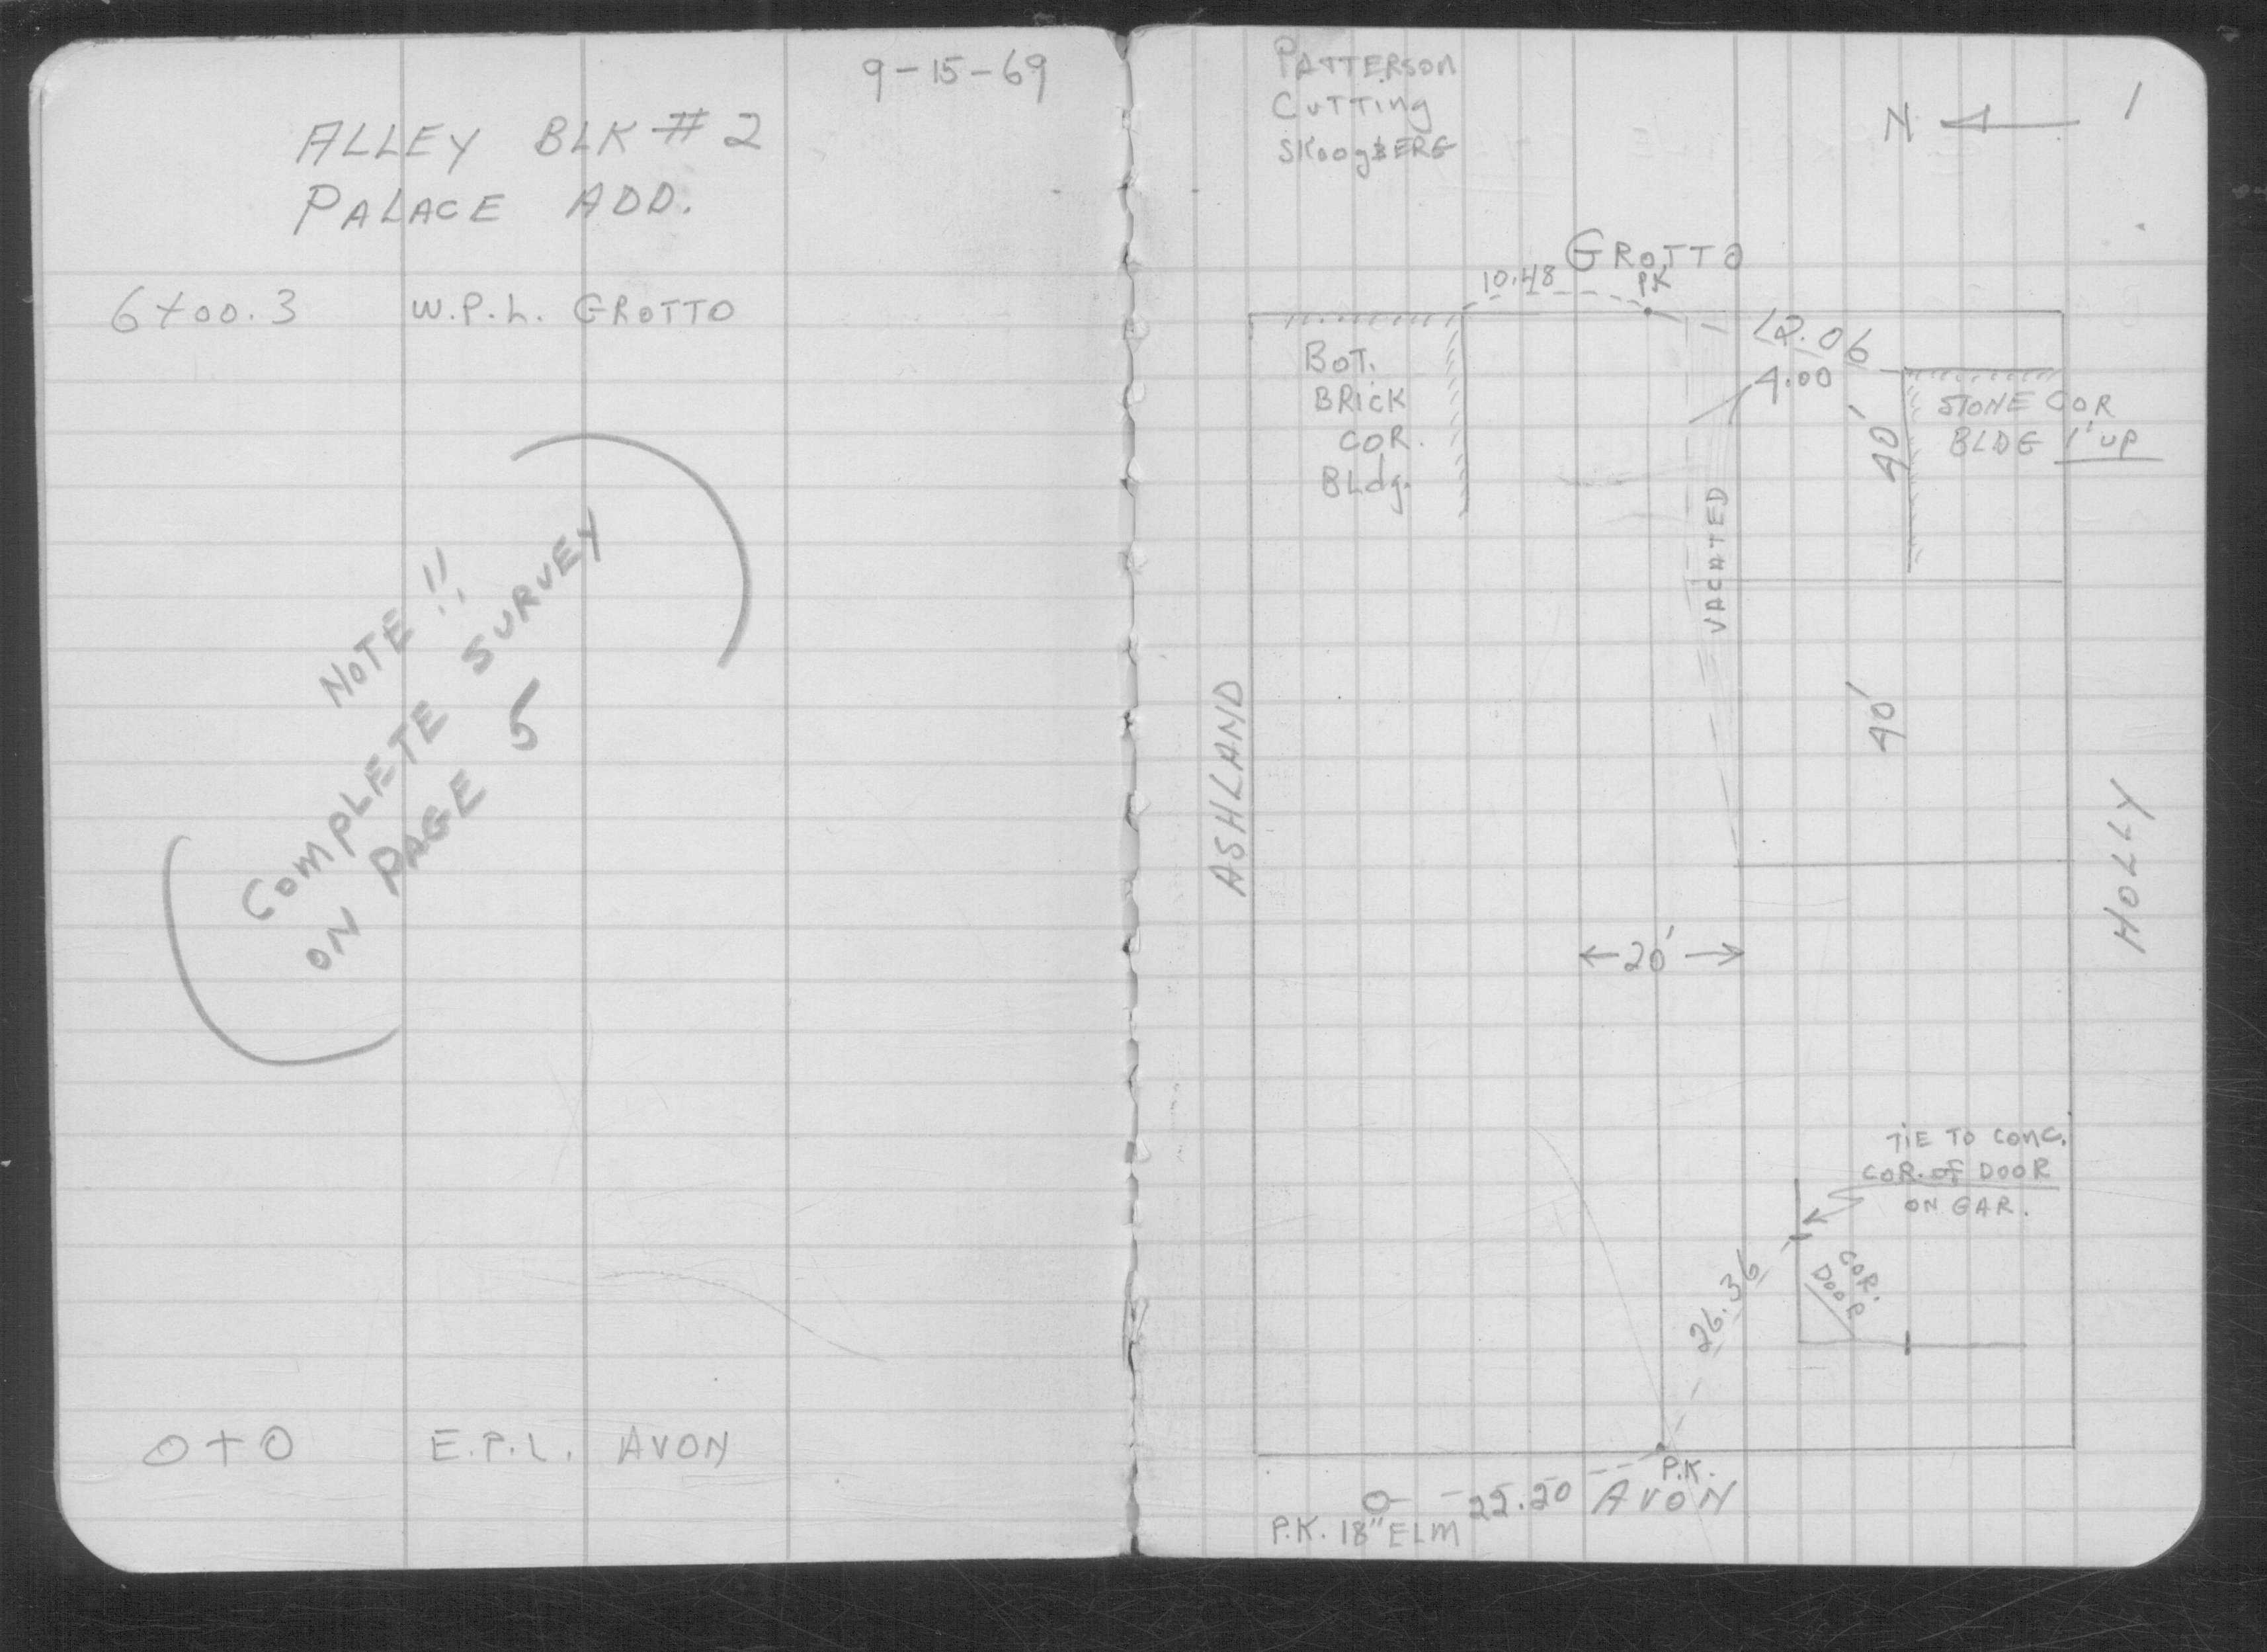 9-15-69
ALLEY BLK #2
PALACE ADD.
6+00.3 W.P.L. GROTTO
NOTE!!
COMPLETE SURVEY
ON PAGE 5
0+0 E.P.L. AVON
PATTERSON
CUTTING
SKoogBERG
N
1
GROTTO
10.48
PK
12.06
4.00
BOT.
BRICK
COR.
BLdg.
STONE COR
BLDG 1' UP
40'
VACATED
40'
ASHLAND
HOLLY
20'
TIE TO CONC.
COR. of DOOR
ON GAR.
COR.
DOOR
26.36
P.K.
22.20 AVON
P.K. 18" ELM